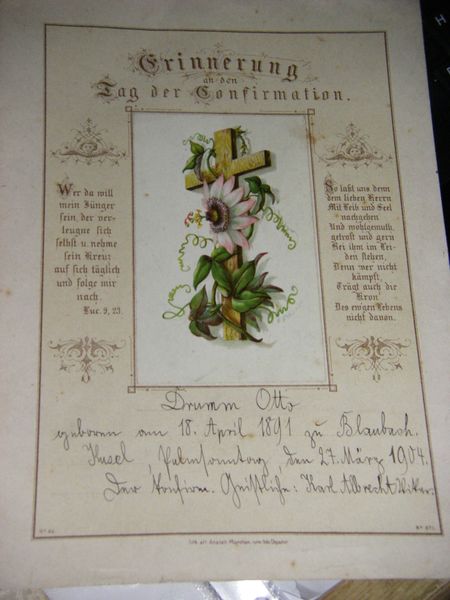 Erinnerung
an den
Tag der Confirmation.
Wer da will
mein Jünger
sein, der ver-
leugne sich
selbst u. nehme
sein Kreuz
auf sich täglich
und folge mir
nach.
Luc. 9, 23.
So laßt uns denn
dem lieben Herrn
Mit Leib und Seel
nachgehen
Und wohlgemuth,
getrost und gern
Bei ihm im Lei-
den stehen,
Denn wer nicht
kämpft,
Trägt auch die
Kron
Des ewgen Lebens
nicht davon.
Drumm Otto
geboren am 18. April 1891 zu Blaubach.
Kusel, Palmsonntag, den 27. März 1904.
Der konfirm. Geistliche: Karl Albrecht